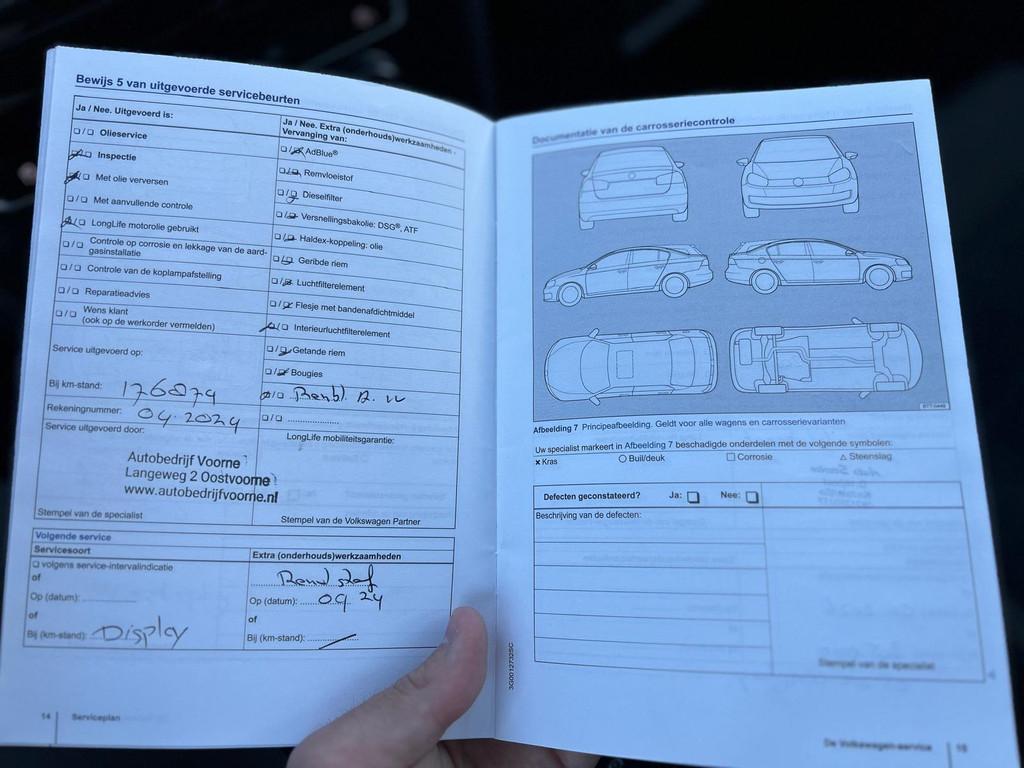 Bewijs 5 van uitgevoerde servicebeurten
Ja / Nee. Uitgevoerd is:
Olieservice
Inspectie
Met olie verversen
Met aanvullende controle
LongLife motorolie gebruikt
Controle op corrosie en lekkage van de aard-
gasinstallatie
Controle van de koplampafstelling
Reparatieadvies
Wens klant
(ook op de werkorder vermelden)
Ja / Nee. Extra (onderhouds)werkzaamheden -
Vervanging van:
AdBlue®
Remvloeistof
Dieselfilter
Versnellingsbakolie: DSG®, ATF
Haldex-koppeling: olie
Geribde riem
Luchtfilterelement
Flesje met bandenafdichtmiddel
Interieurluchtfilterelement
Getande riem
Bougies
Service uitgevoerd op:
Bij km-stand: 176879
Rekeningnummer: 04.2024
Service uitgevoerd door:
LongLife mobiliteitsgarantie:
Autobedrijf Voorne
Langeweg 2 Oostvoorne
www.autobedrijfvoorne.nl
Stempel van de specialist
Stempel van de Volkswagen Partner
Volgende service
Servicesoort
volgens service-intervalindicatie
of
Op (datum):
of
Bij (km-stand): Display
Extra (onderhouds)werkzaamheden
Op (datum): 09 24
of
Bij (km-stand):
14 Serviceplan
Documentatie van de carrosseriecontrole
Afbeelding 7 Principeafbeelding. Geldt voor alle wagens en carrosserievarianten
Uw specialist markeert in Afbeelding 7 beschadigde onderdelen met de volgende symbolen:
× Kras ○ Buil/deuk □ Corrosie △ Steenslag
Defecten geconstateerd? Ja: Nee:
Beschrijving van de defecten:
Stempel van de specialist
3G0012732SC
De Volkswagen-service 15